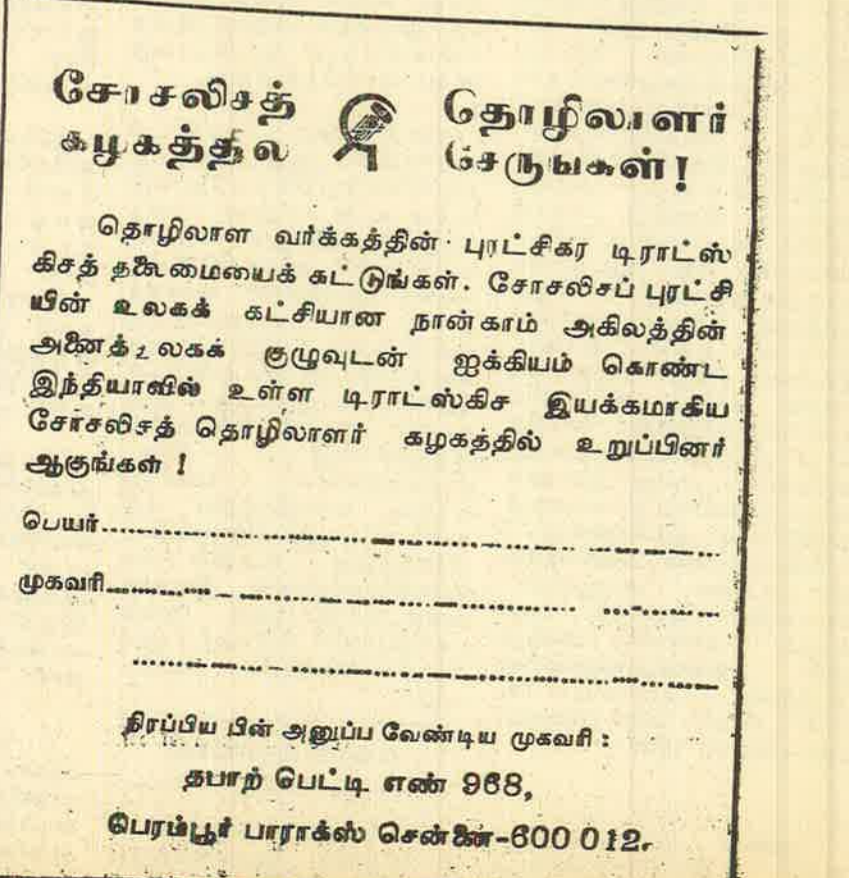 சோசலிசத் தொழிலாளர்
கழகத்தில் சேருங்கள்!
தொழிலாள வர்க்கத்தின் புரட்சிகர டிராட்ஸ்
கிசத் தலைமையைக் கட்டுங்கள். சோசலிசப் புரட்சி
யின் உலகக் கட்சியான நான்காம் அகிலத்தின்
அனைத்துலகக் குழுவுடன் ஐக்கியம் கொண்ட
இந்தியாவில் உள்ள டிராட்ஸ்கிச இயக்கமாகிய
சோசலிசத் தொழிலாளர் கழகத்தில் உறுப்பினர்
ஆகுங்கள் !
பெயர்
முகவரி
நிரப்பிய பின் அனுப்ப வேண்டிய முகவரி :
தபாற் பெட்டி எண் 968,
பெரம்பூர் பாராக்ஸ் சென்னை-600 012.